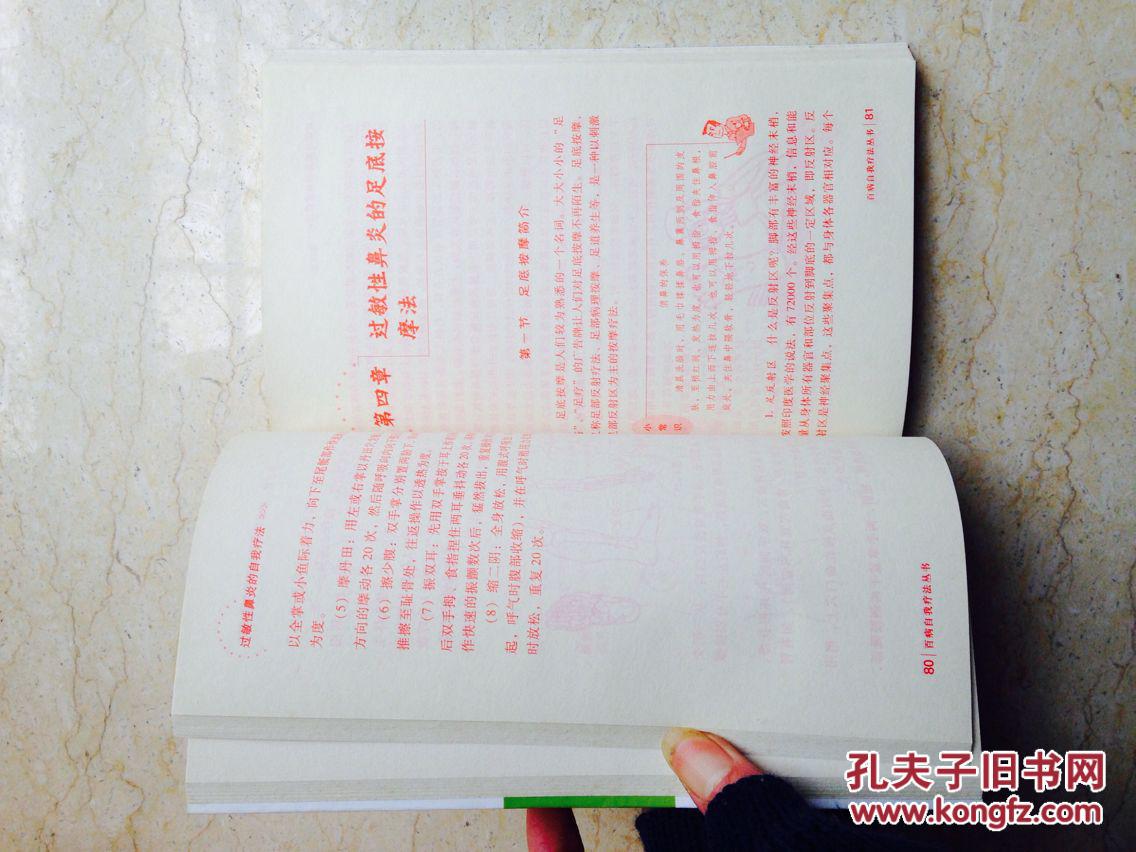 过敏性鼻炎的自我疗法 >>>
以全掌或小鱼际着力，向下至尾骶部作快速
为度。
（5）摩丹田：用左或右掌以丹田为
方向的摩动各 20 次，然后随呼吸向内向下
（6）擦少腹：双手掌分别置两胁下，
推擦至耻骨处，往返操作以透热为度。
（7）振双耳：先用双手掌按于耳上
后双手拇、食指捏住两耳垂抖动各 20 次，
作快速的振颤数次后，猛然拔出，重复
（8）缩二阴：全身放松，用腹式呼吸
起，呼气时腹部收缩），并在呼气时
时放松，重复 20 次。
80 | 百病自我疗法丛书
第四章
过敏性鼻炎的足底按
摩法
第一节 足底按摩简介
足底按摩是人们较为熟悉的一个名词。大大小小的“足
”、“足疗”的广告牌让人们对足底按摩不再陌生。足底按摩，
称足部反射疗法、足部病理按摩、足道养生等，是一种以刺激
部反射区为主的按摩疗法。
小常识
清鼻的保养
清晨洗脸时，用毛巾揉搓鼻唇、鼻翼两侧及周围的皮
肤，至稍红润、发热为度。也可以用拇指、食指夹住鼻根，
用力由上而下连拉几次。也可以将拇指、食指伸入鼻腔前
庭处，夹住鼻中隔软骨，轻轻地下拉几次。
1. 足反射区 什么是反射区呢？脚部有丰富的神经末梢，
按照印度医学的说法，有 72000 个。经这些神经末梢，信息和能
量从身体所有器官和部位反射到脚底的一定区域，即反射区。反
射区是神经聚集点，这些聚集点，都与身体各器官相对应。每个
百病自我疗法丛书 | 81
孔夫子旧书网
www.kongfz.com